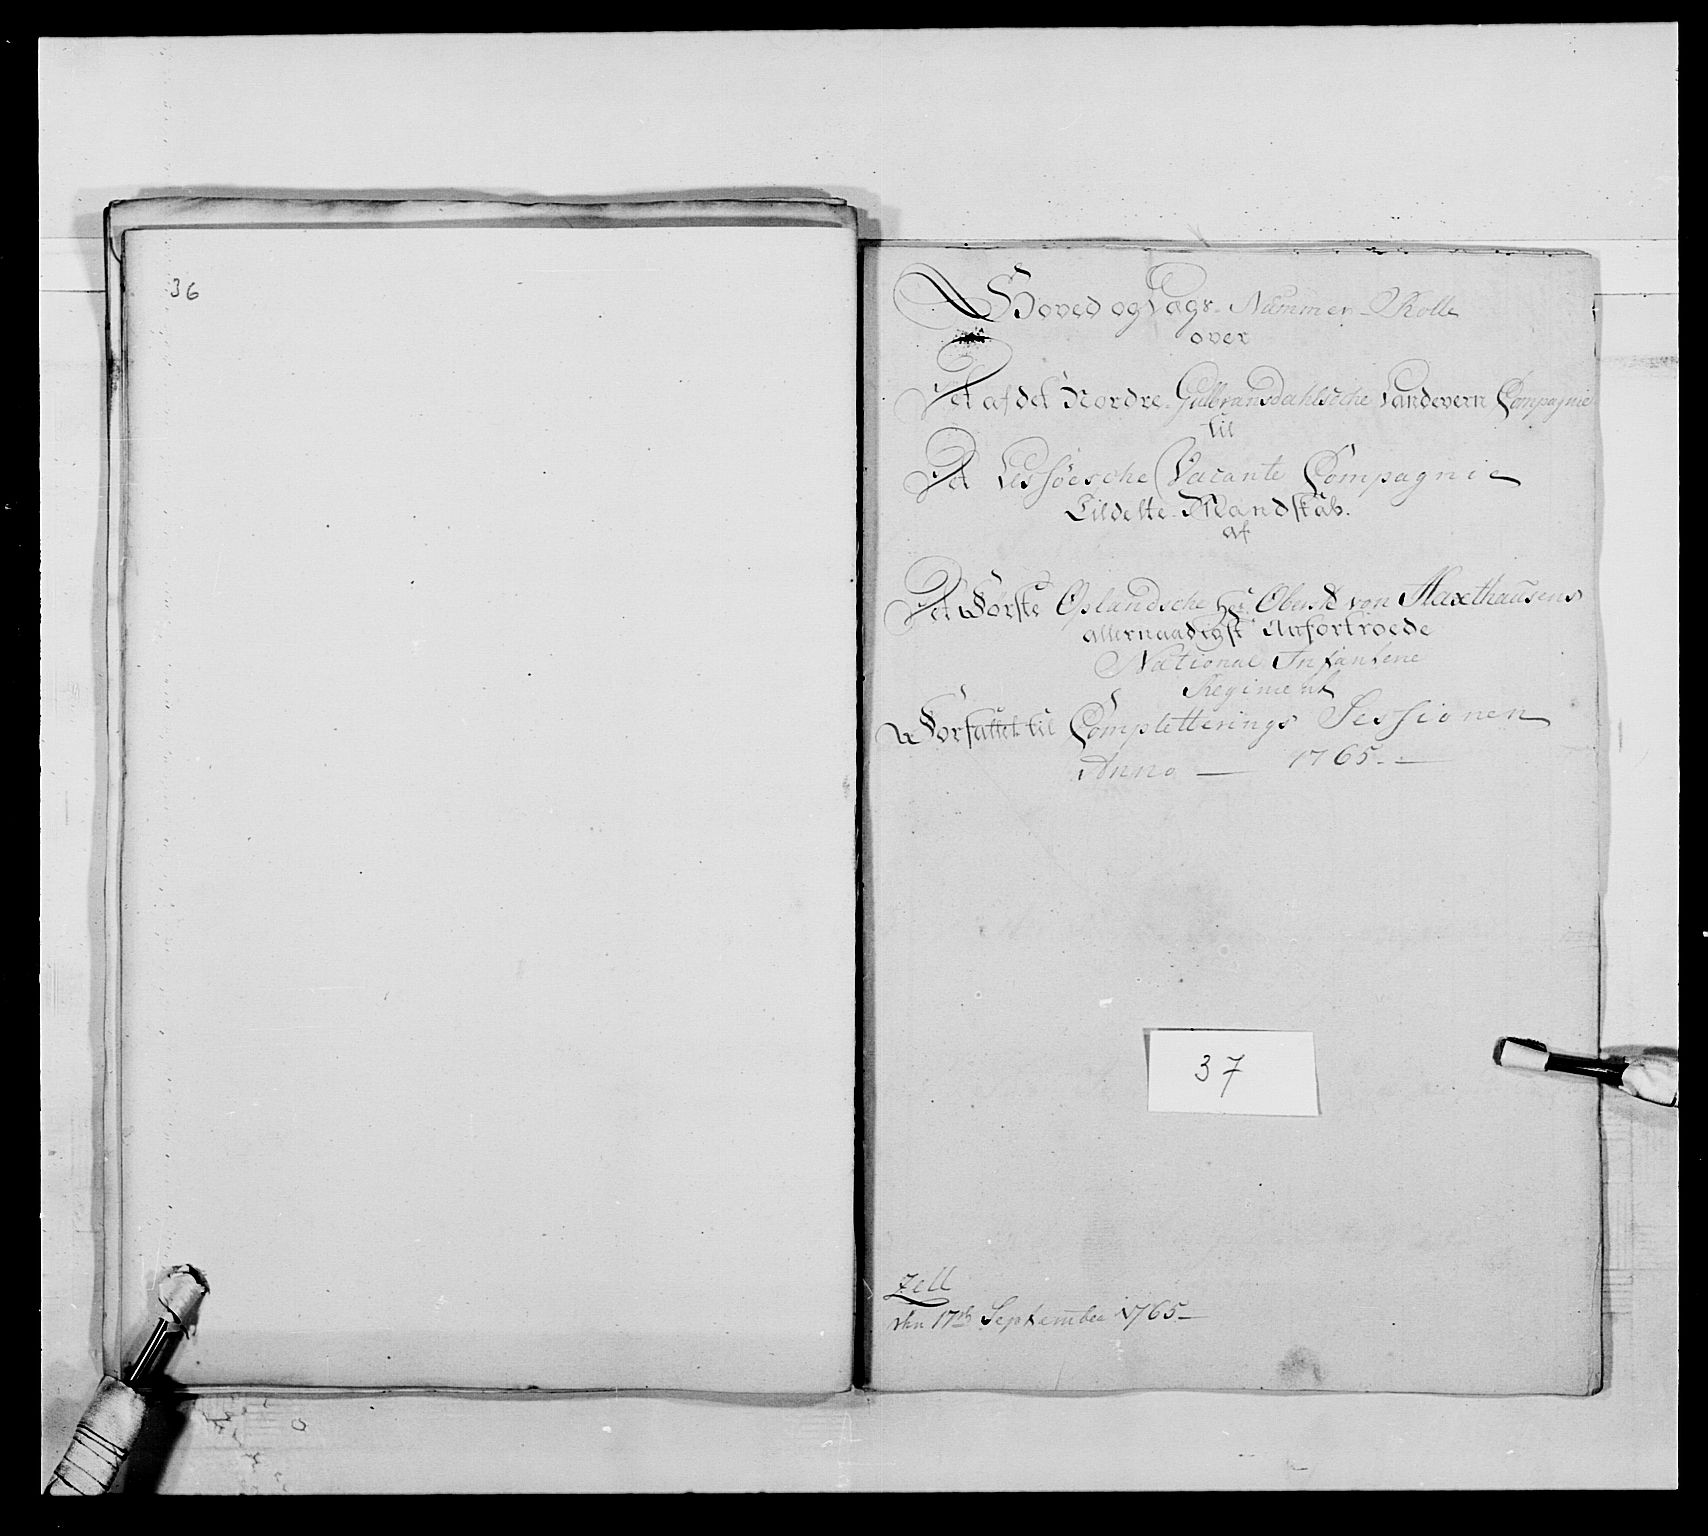 36
Hoved og Lægs-Nummer-Rolle
over
Det af det Nordre Gulbransdahlsche Landevern Compagnie
til
Det Lessøesche Vacante Compagnie
Tildelte Mandskab.
af
Det Første Oplandsche Hr. Oberst von Haxthausens
allernaadigst Anfortroede
National Infanterie
Regiment
Forfattet til Completterings Sessionen
Anno — 1765. —
37
Zell
den 17de September 1765 —